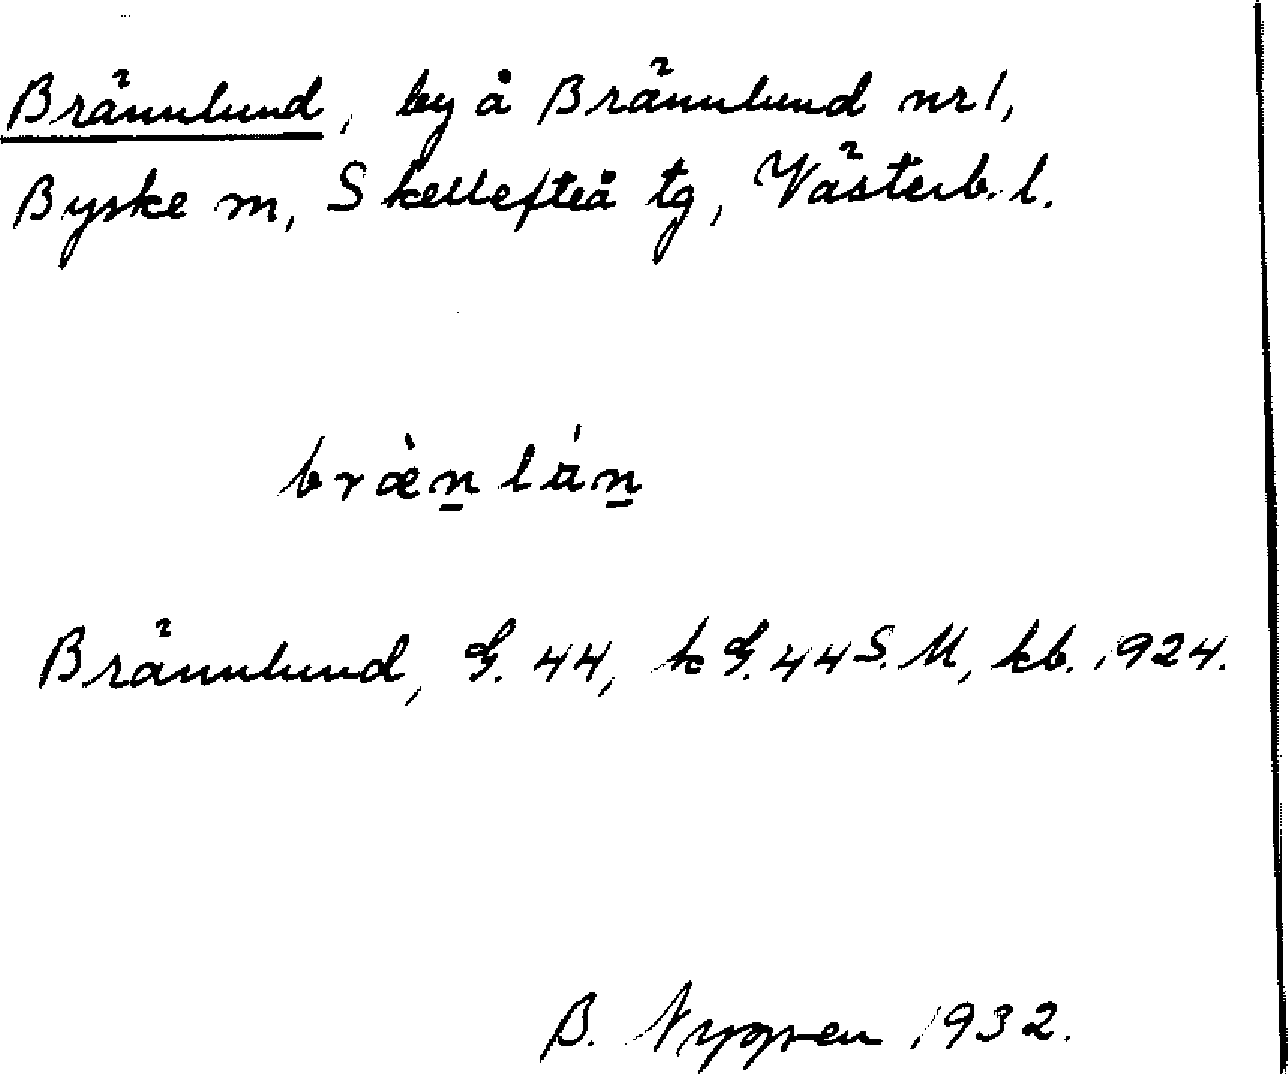 Brännlund, by å Brännlund nr 1,
Byske sn, Skellefteå tg, Västerb. l.
bræ̀n̲ lán̲
Brännlund, G. 44, k G. 44 S. M, kb. 1924.
B. Nygren 1932.